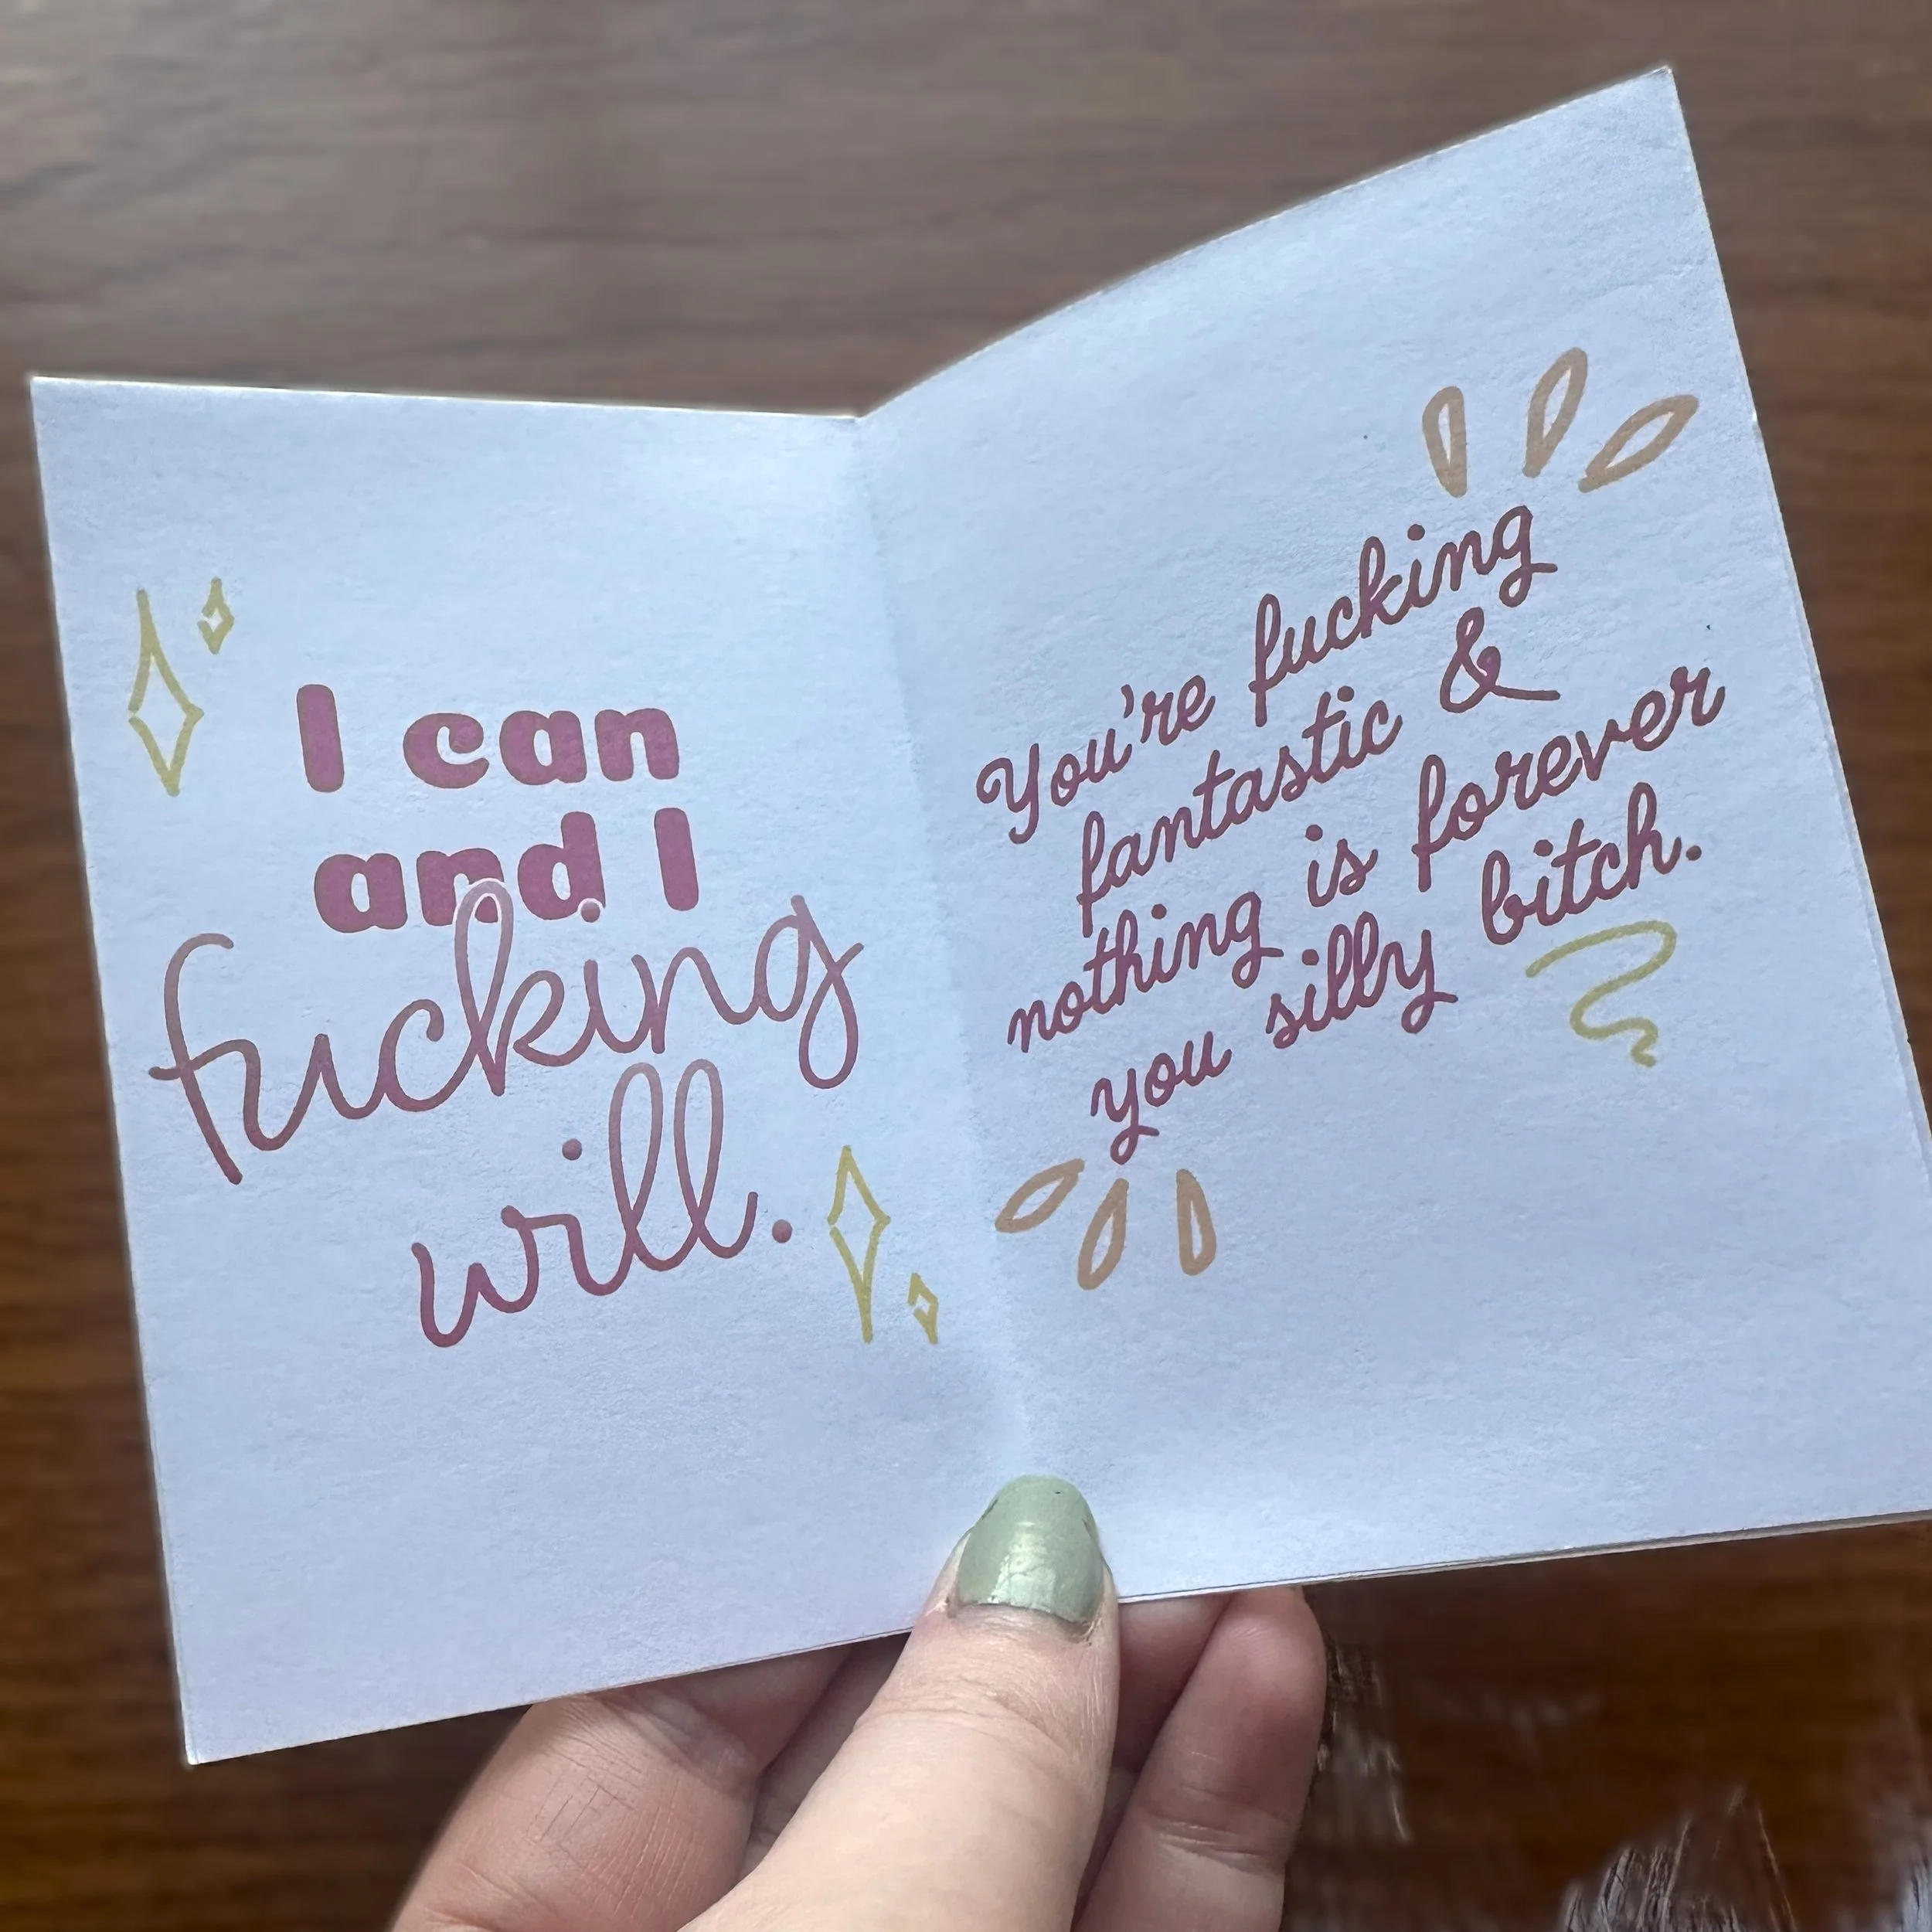 I can
and I
fucking
will.
You're fucking
fantastic &
nothing is forever
you silly bitch.